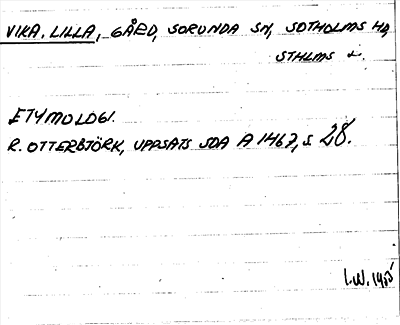 VIKA. LILLA, GÅRD, SORUNDA SN, SOTHOLMS HD,
STHLMS L.
ETYMOLOGI.
R. OTTERBJÖRK, UPPSATS SOA A 1467, S 28.
I.W. 1955